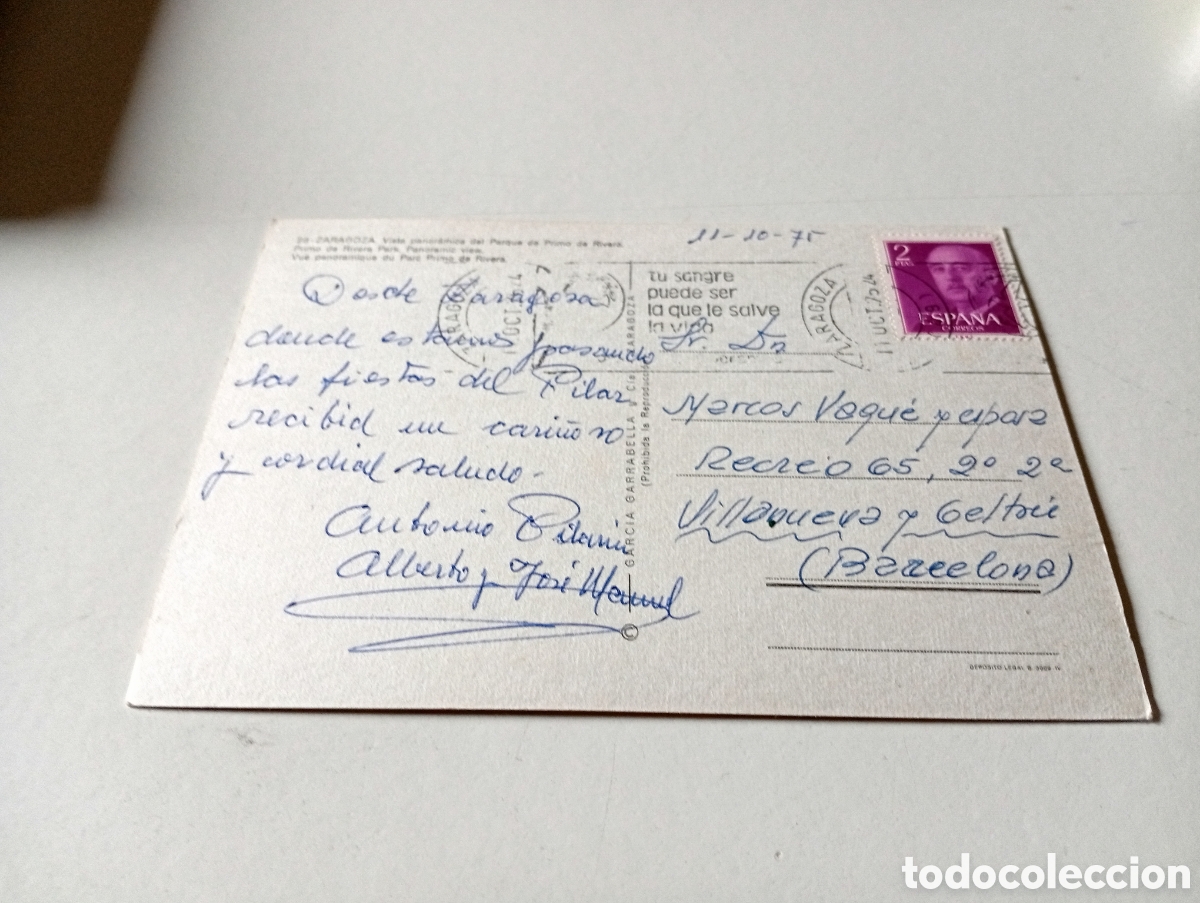 29-ZARAGOZA. Vista panorámica del Parque de Primo de Rivera.
Primo de Rivera Park. Panoramic view.
Vue panoramique du Parc Primo de Rivera.
11-10-75
Desde Zaragoza
donde estamos pasando
las fiestas del Pilar
recibid un cariñoso
y cordial saludo-
Antonio Pilarín
Alberto y José Manuel
GARCIA GARRABELLA Y Cía. ZARAGOZA
(Prohibida la Reproducción)
©
ZARAGOZA
11 OCT 75 24
tu sangre
puede ser
la que le salve
la vida
ZARAGOZA
11 OCT 75 24
2
PTAS
ESPAÑA
CORREOS
Sr. Dn
Marcos Vaqué y esposa
Recreo 65, 2º 2ª
Villanueva y Geltrú
(Barcelona)
DEPOSITO LEGAL B.
todocoleccion